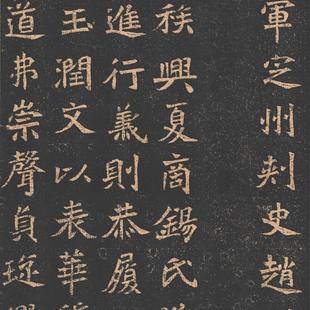 軍定州刾史趙
族興夏商錫氏
進行義則恭履
玉潤文以表華
道弗崇聲貞琁